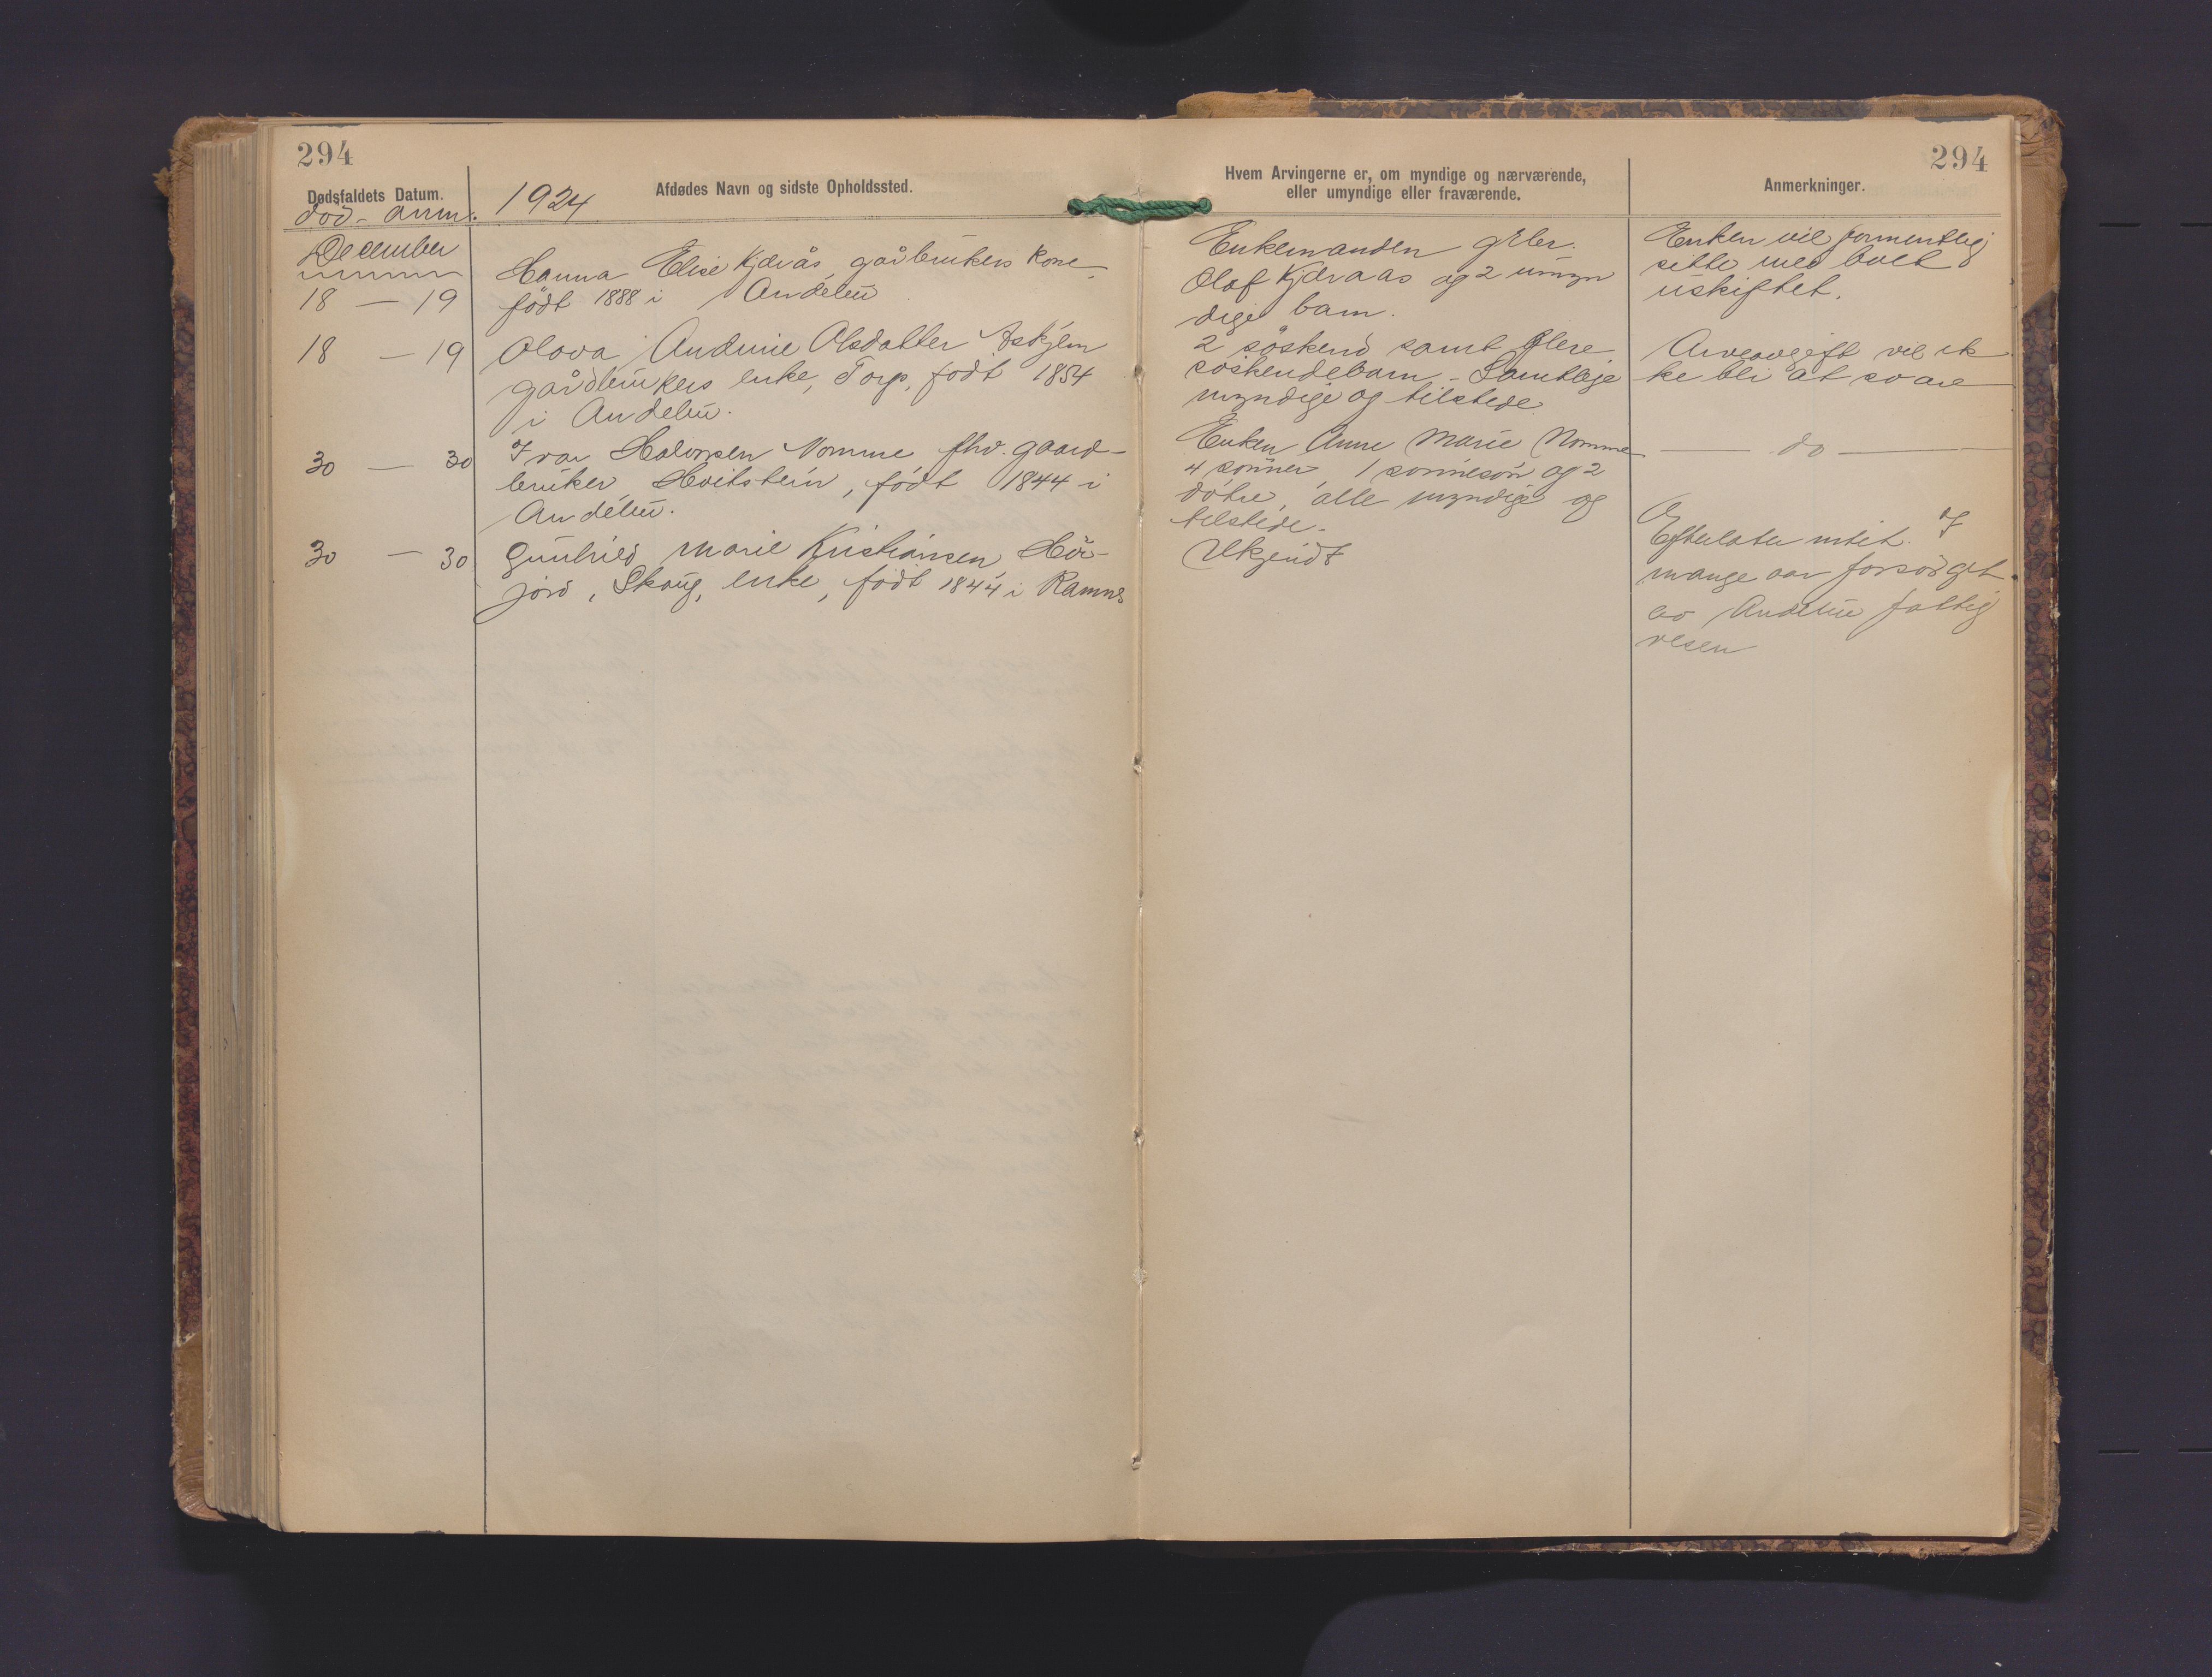 294
294
Dødsfaldets Datum.
død - anm.
1924
Afdødes Navn og sidste Opholdssted.
Hvem Arvingerne er, om myndige og nærværende,
eller umyndige eller fraværende.
Anmerkninger.
December
18 — 19
Hanna Elise Kjærås, gårbrukers kone,
født 1888 i Andebu
Enkemanden gbr.
Olaf Kjæraas og 2 umyn
dige barn.
Enken vil formentlig
sitte med boet
uskiftet.
18 — 19
Olava Andrine Olsdatter Askjem
gårdbrukers enke, Torp, født 1854
i Andebu.
2 søskend samt flere
søskendebarn - Samtlige
myndige og tilstede
Arveavgift vil ik
ke bli at svare
30 — 30
Ivar Halvorsen Nomme fhv. gaard-
bruker Hvitstein, født 1844 i
Andebu.
Enken Anne Marie Nomme
4 sønner 1 sønnesøn og 2
døtre, alle myndige og
tilstede.
— do —
30 — 30
Gunhild Marie Kristiansen, Hör-
jord, Skoug, enke, født 1844 i Ramnes
Ukjendt
Efterlater intet. I
mange aar forsørget
av Andebu fattig
vesen